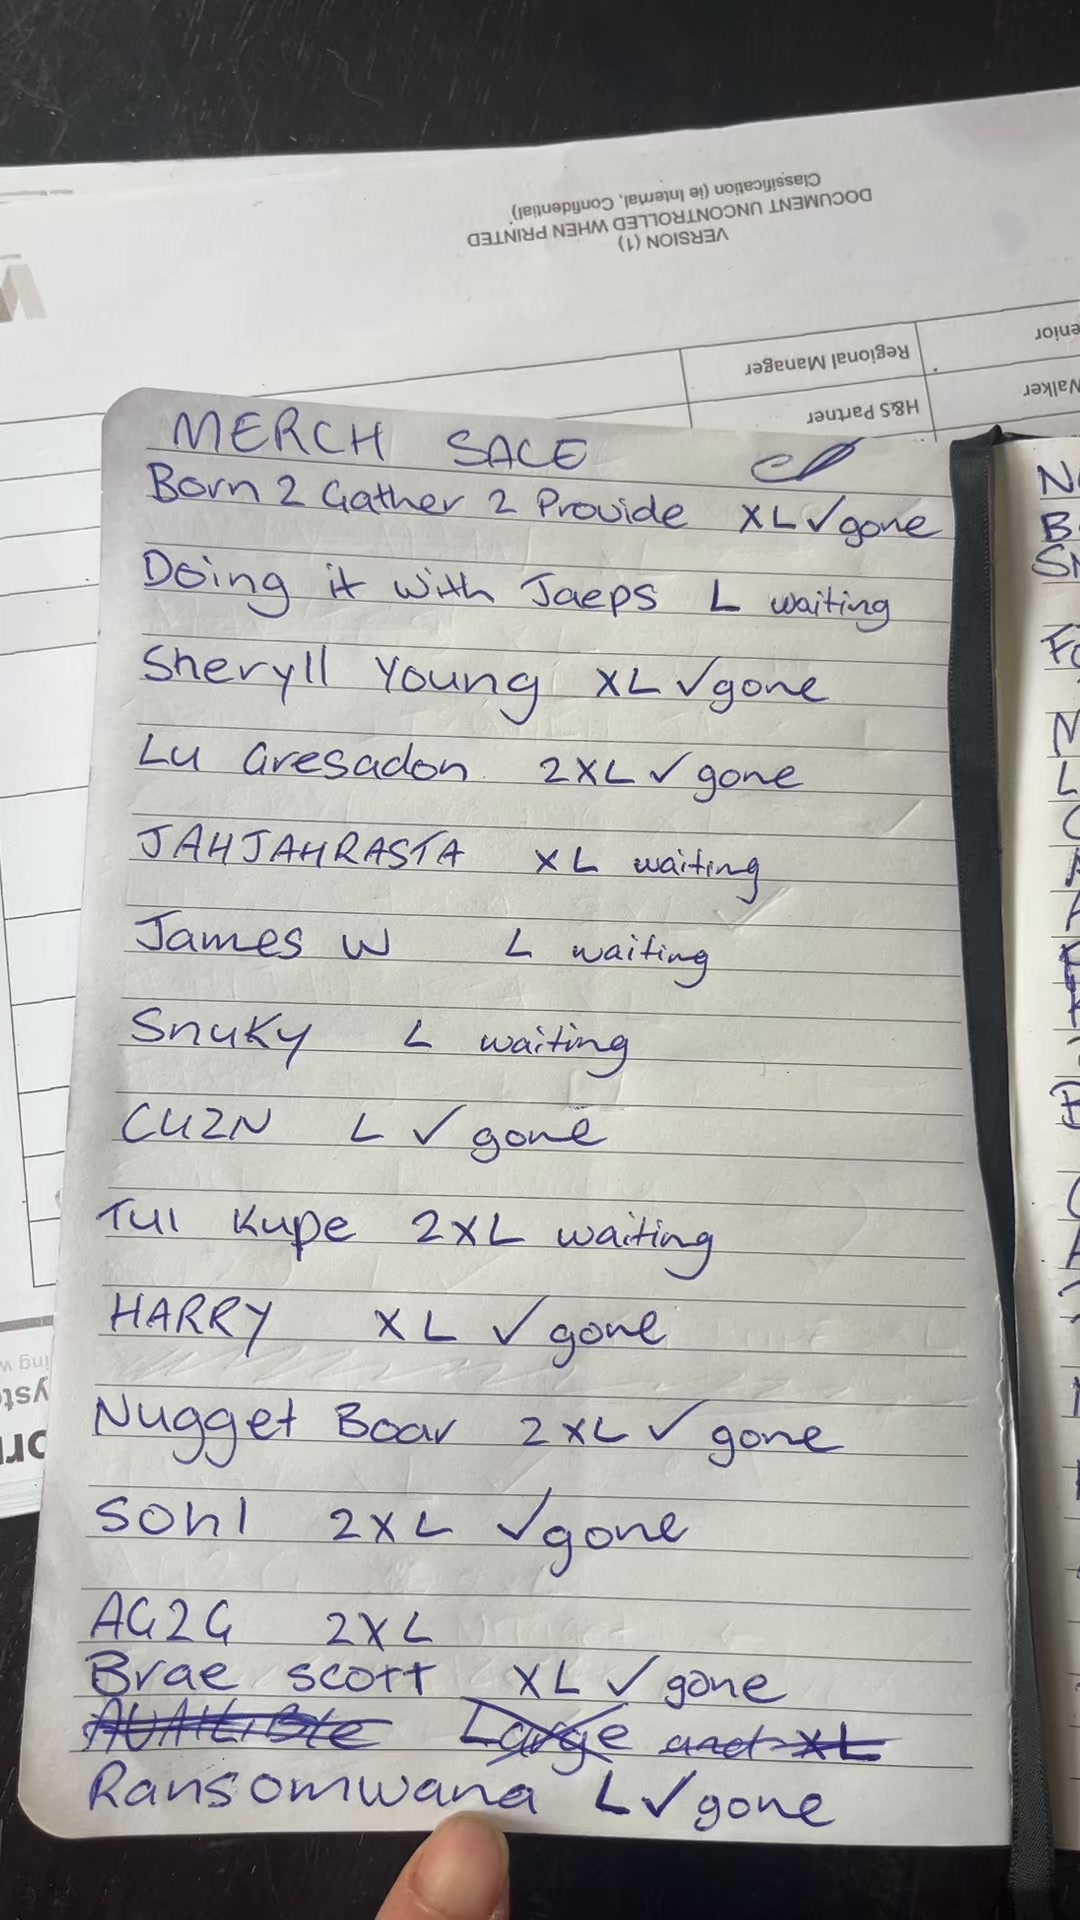 Classification (ie Internal, Confidential)
DOCUMENT UNCONTROLLED WHEN PRINTED
VERSION (1)
Regional Manager
H&S Partner
Walker
MERCH SALE
Born 2 Gather 2 Provide XL ✓ gone
Doing it with Jaeps L waiting
Sheryll Young XL ✓ gone
Lu Gresadon 2XL ✓ gone
JAHJAHRASTA XL waiting
James W L waiting
Snuky L waiting
CUZN L ✓ gone
TUI Kupe 2XL waiting
HARRY XL ✓ gone
Nugget Boar 2XL ✓ gone
Sohl 2XL ✓ gone
AG2G 2XL
Brae scott XL ✓ gone
AVAILIBLE Large and XL
Ransomwana L ✓ gone